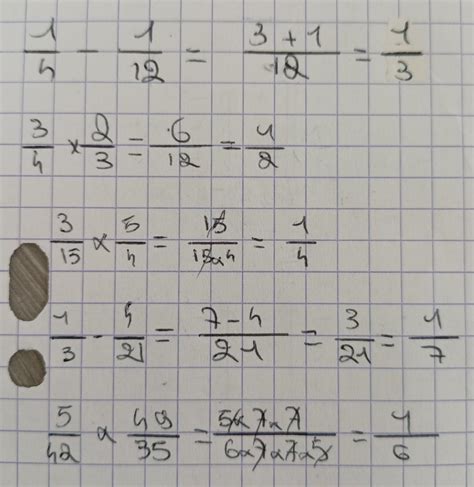 1/4 - 1/12 = (3 + 1)/12 = 1/3
3/4 × 2/3 = 6/12 = 1/2
3/15 × 5/4 = 15/(15×4) = 1/4
1/3 - 4/21 = (7 - 4)/21 = 3/21 = 1/7
5/42 × 49/35 = (5×7×7)/(6×7×7×5) = 1/6